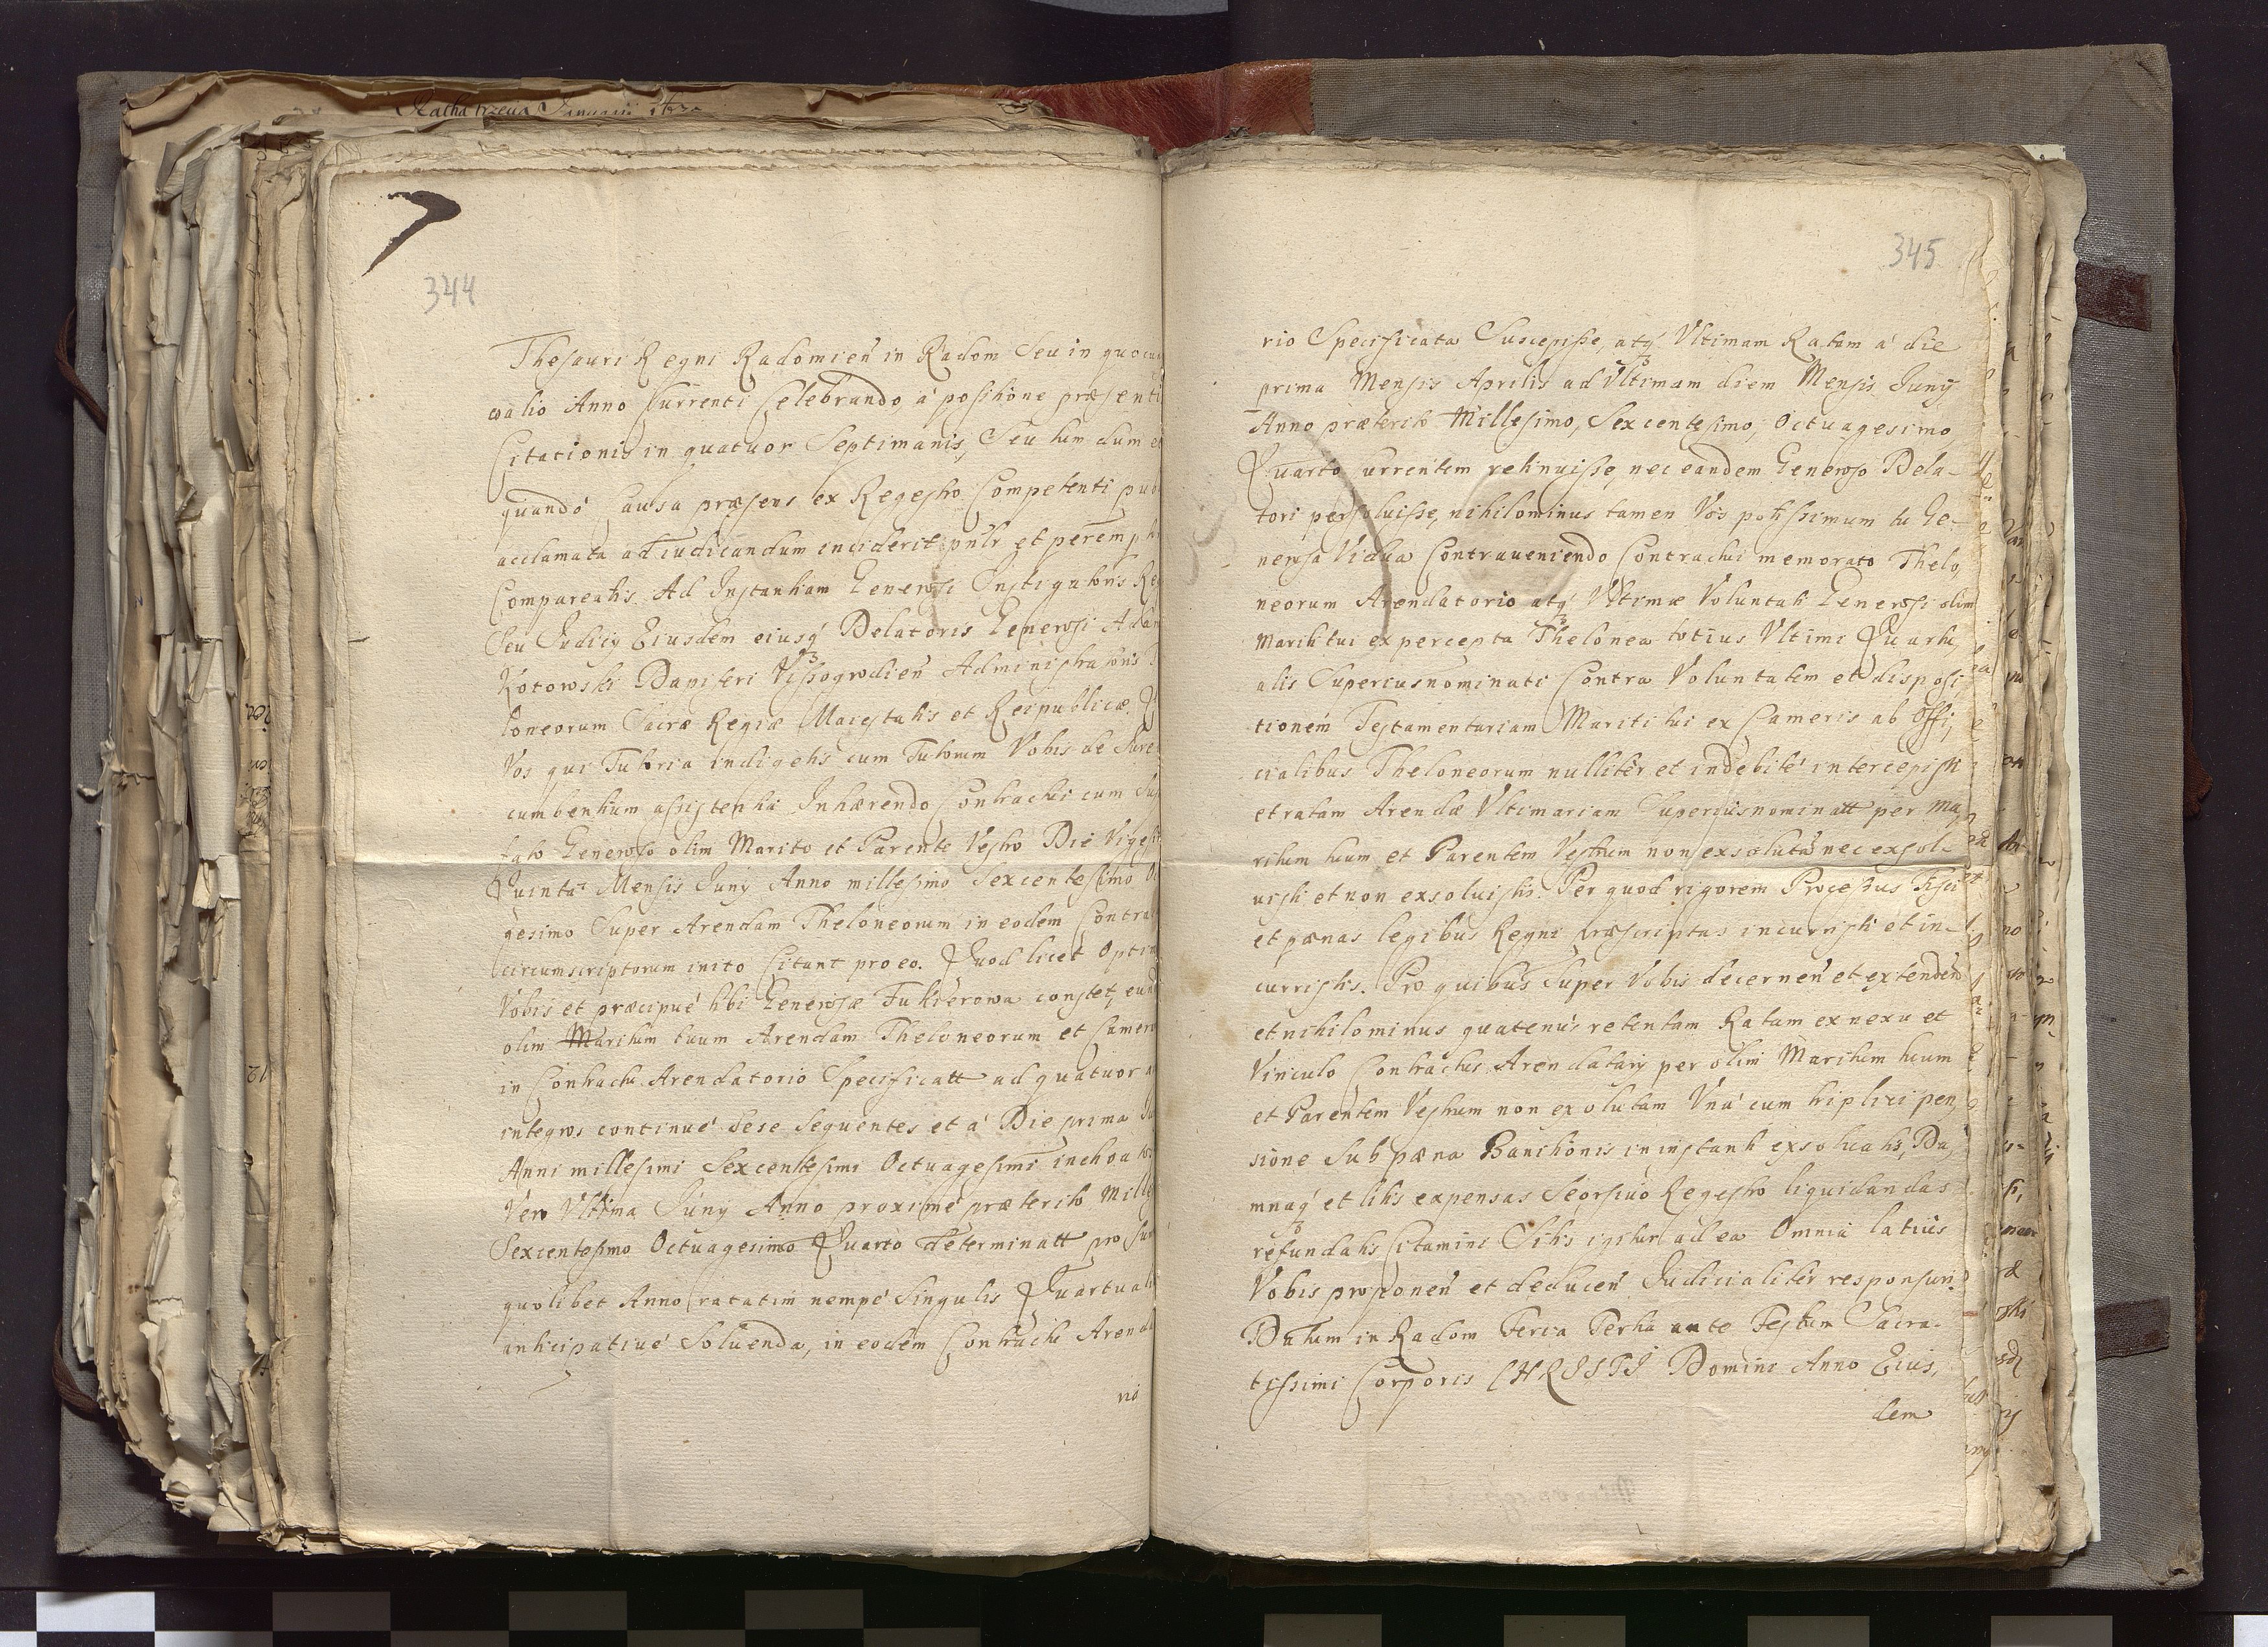 Rathatrzena Januarii 1630
344
Thesauri Regni Radomień in Radom Seu in quocun
walio Anno currenti Celebrando, á positione præsenti
Citationis in quatuor Septimanis, Seu tum dum et
quando Causa præsens ex Regestro Competenti pub
acclamata ad iudicandum inciderit, pnłr et perempt
Compareatis. Ad Instantiam Generosi Instigatoris Reg
Seu Iudicij Eiusdem eiusq́ Delatoris Generosi Adam
Kotowski Dapiferi Vissogrodień Administratoris T
loneorum Sacræ Regiæ Maiestatis et Reipublicæ. Q
Vos qui Tutoria indigetis cum Tutorum Vobis de Iure
cumbentium assistentia Inhærendo Contractui cum Su
tato Generoso olim Marito et Parente Vestro Die Vigesi
Quinta Mensis Juny Anno millesimo Sexcentesimo Oc
gesimo Super Arendam Theloneorum in eodem Contra
circumscriptorum inito Citant pro eo. Quod licet Optim
Vobis et præcipué tibi Generosæ Tukierowa constet, eund
olim Maritum tuum Arendam Theloneorum et Camero
in Contractu Arendatorio Specificatt ad quatuor a
integros continué Sese Sequentes et á Die prima Iu
Anni millesimi Sexcentesimi Octuagesimi inchoatos
Vero Ultima Juny Anno proximé præterito Mille
Sexcentesimo Octuagesimo Quarto determinatt pro Sum
quolibet Anno ratatim nempé Singulis Quartuali
anticipativé Soluenda, in eodem Contractu Arenda
rió
345
rio Specificata Suscepisse, atq́ Vltimam Ratam á die
prima Mensis Aprilis ad Vltimam diem Mensis Juny
Anno præterito Millesimo, Sexcentesimo, Octuagesimo,
Quarto currentem retinuisse, nec eandem Generoso Dela-
tori persoluisse, nihilominus tamen Vos potissimum tu Ge-
nerosa Vidua Contraueniendo Contractui memorato Thelo,
neorum Arendatorio atq́ Vltimæ Voluntati Generosi olim
Mariti tui ex percepta Thelonea totius Vltimi Quartu,
alis Superiusnominati Contra Voluntatem et disposi
tionem Testamentariam Mariti tui ex Cameris ab Offi,
cialibus Theloneorum nullitér et indebité intercepisti
et ratam Arendæ Vltimariam Superiusnominatt per Ma,
ritum tuum et Parentem Vestrum non exsolutã nec exsol-
uisti et non exsoluistis. Per quod rigorem Processus Fisci
et pænas legibus Regni præscriptas incurristi et in-
curristis. Pro quibus Super Vobis decerneñ et extendeñ
et nihilominus quatenus retentam Ratam ex nexu et
Vinculo Contractus Arendatarij per olim Maritum tuum
et Parentem Vestrum non exolutam Vná cum triplici pen,
sione Sub pæna Banitionis in instanti exsoluatis, Da,
mnaq́ et litis expensas Seorsiuo Regestro liquidandas
refundatis Citamini Sitis igitur ad ea Omnia latius
Vobis proponeñ et deduceñ Iudicialitér responsuri.
Datum in Radom Feria Tertia ante Festum Sacra-
tissimi Corporis CHRISTI Domini Anno Eius,
dem